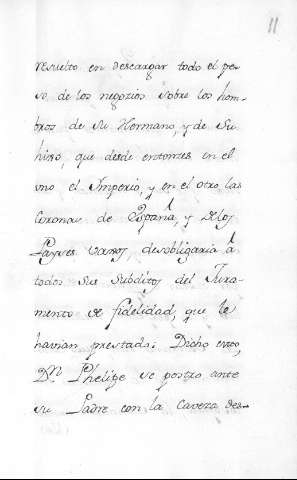 11
resuelto en descargar todo el pe-
so de los negocios sobre los hom-
bros de su Hermano, y de Su
hixo, que desde entonces en el
uno el Imperio, y en el otro, las
Coronas de España, y de los
Payses vaxos, desobligaria á
todos sus Subditos del Jura-
mento de fidelidad, que le
havian prestado: Dicho esto,
Dn. Phelipe se postro ante
su Padre con la Caveza des-